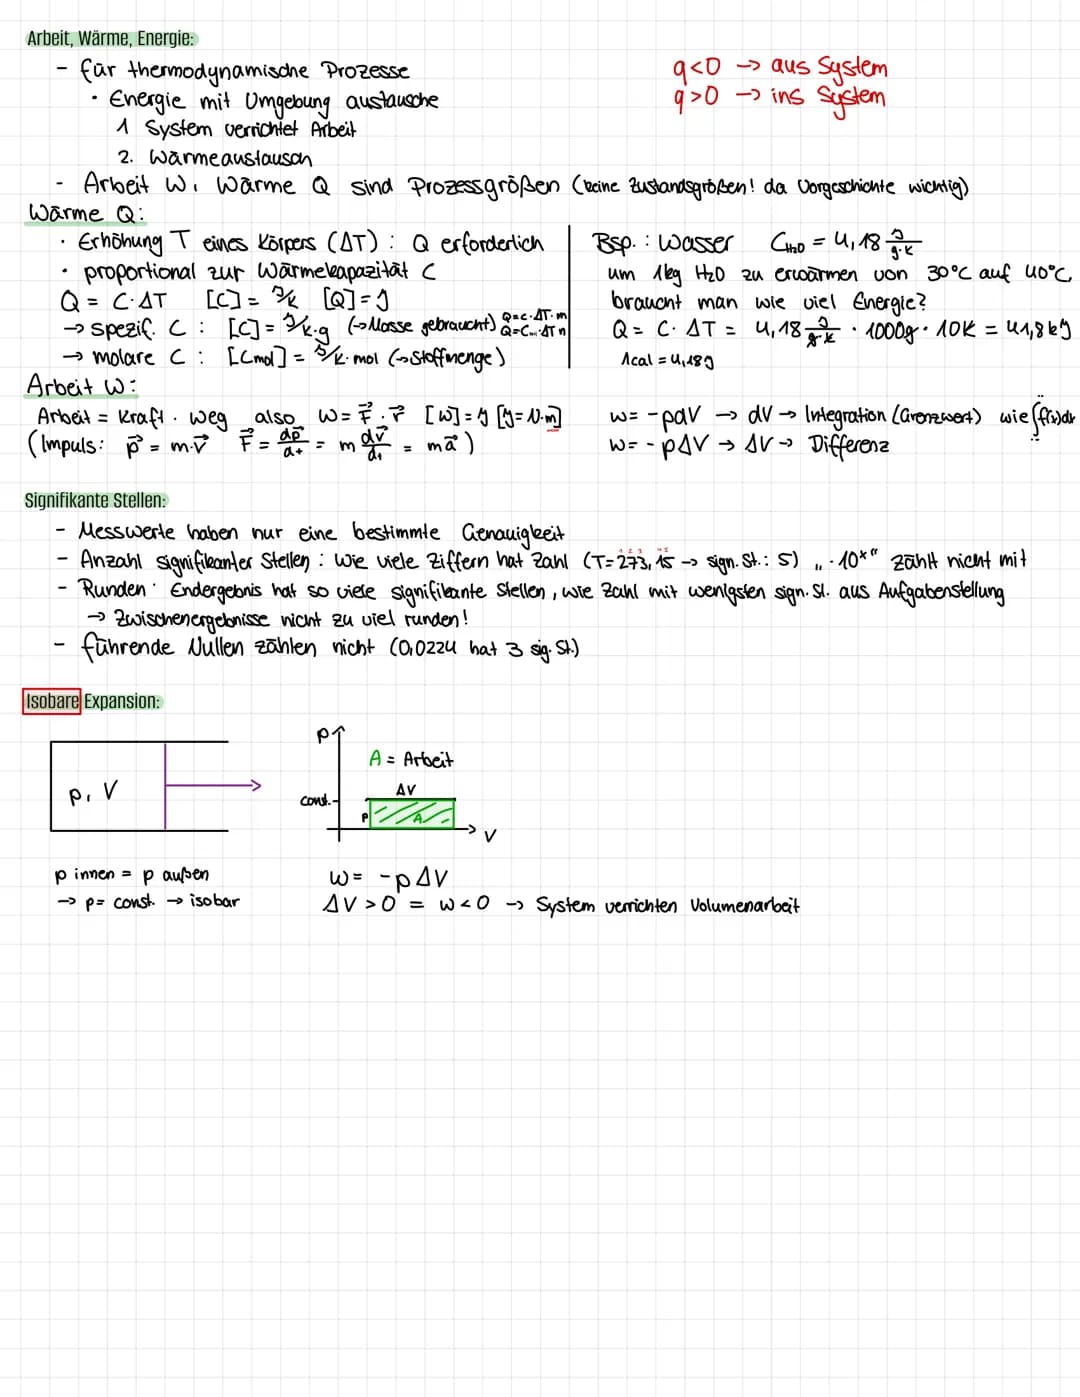 Arbeit, Wärme, Energie:
- für thermodynamische Prozesse
q<0 → aus System
· Energie mit Umgebung austausche
q>0 → ins System
1 System verrichtet Arbeit
2. Wärmeaustausch
- Arbeit W, Wärme Q sind Prozessgrößen (keine Zustandsgrößen! da Vorgeschichte wichtig)
Wärme Q:
· Erhöhung T eines Körpers (ΔT) : Q erforderlich
· proportional zur Wärmekapazität C
Q = C·ΔT [C] = J/K [Q] = J
→ spezif. C : [C] = J/K·g (→ Masse gebraucht) Q=c·ΔT·m
→ molare C : [Cmol] = J/K·mol (→ Stoffmenge) Q=Cm·ΔT n
Bsp. : Wasser CH2O = 4,18 J/g·K
um 1kg H2O zu erwärmen von 30°C auf 40°C,
braucht man wie viel Energie?
Q = C· ΔT = 4,18 J/g·K · 1000g · 10K = 41,8 kJ
1cal = 4,18J
Arbeit W:
Arbeit = Kraft · Weg also W = F⃗ · r⃗ [W] = J [J = N·m]
(Impuls: p⃗ = m·v⃗ F⃗ = dp⃗/dt = m dv⃗/dt = ma⃗)
W = -pdV → dV → Integration (Grenzwert) wie ∫f(x)dx
W = -pΔV → ΔV → Differenz
Signifikante Stellen:
- Messwerte haben nur eine bestimmte Genauigkeit
1 2 3 4 5
- Anzahl signifikanter Stellen : Wie viele Ziffern hat Zahl (T=273,15 → sign. St.: 5) „ · 10ˣ“ zählt nicht mit
- Runden : Endergebnis hat so viele signifikante Stellen, wie Zahl mit wenigsten sign. St. aus Aufgabenstellung
→ Zwischenergebnisse nicht zu viel runden!
- führende Nullen zählen nicht (0,0224 hat 3 sig. St.)
Isobare Expansion:
p, V
p
A = Arbeit
ΔV
const.
p
A
V
p innen = p außen
→ p = const. → isobar
W = -pΔV
ΔV > 0 = W < 0 → System verrichten Volumenarbeit